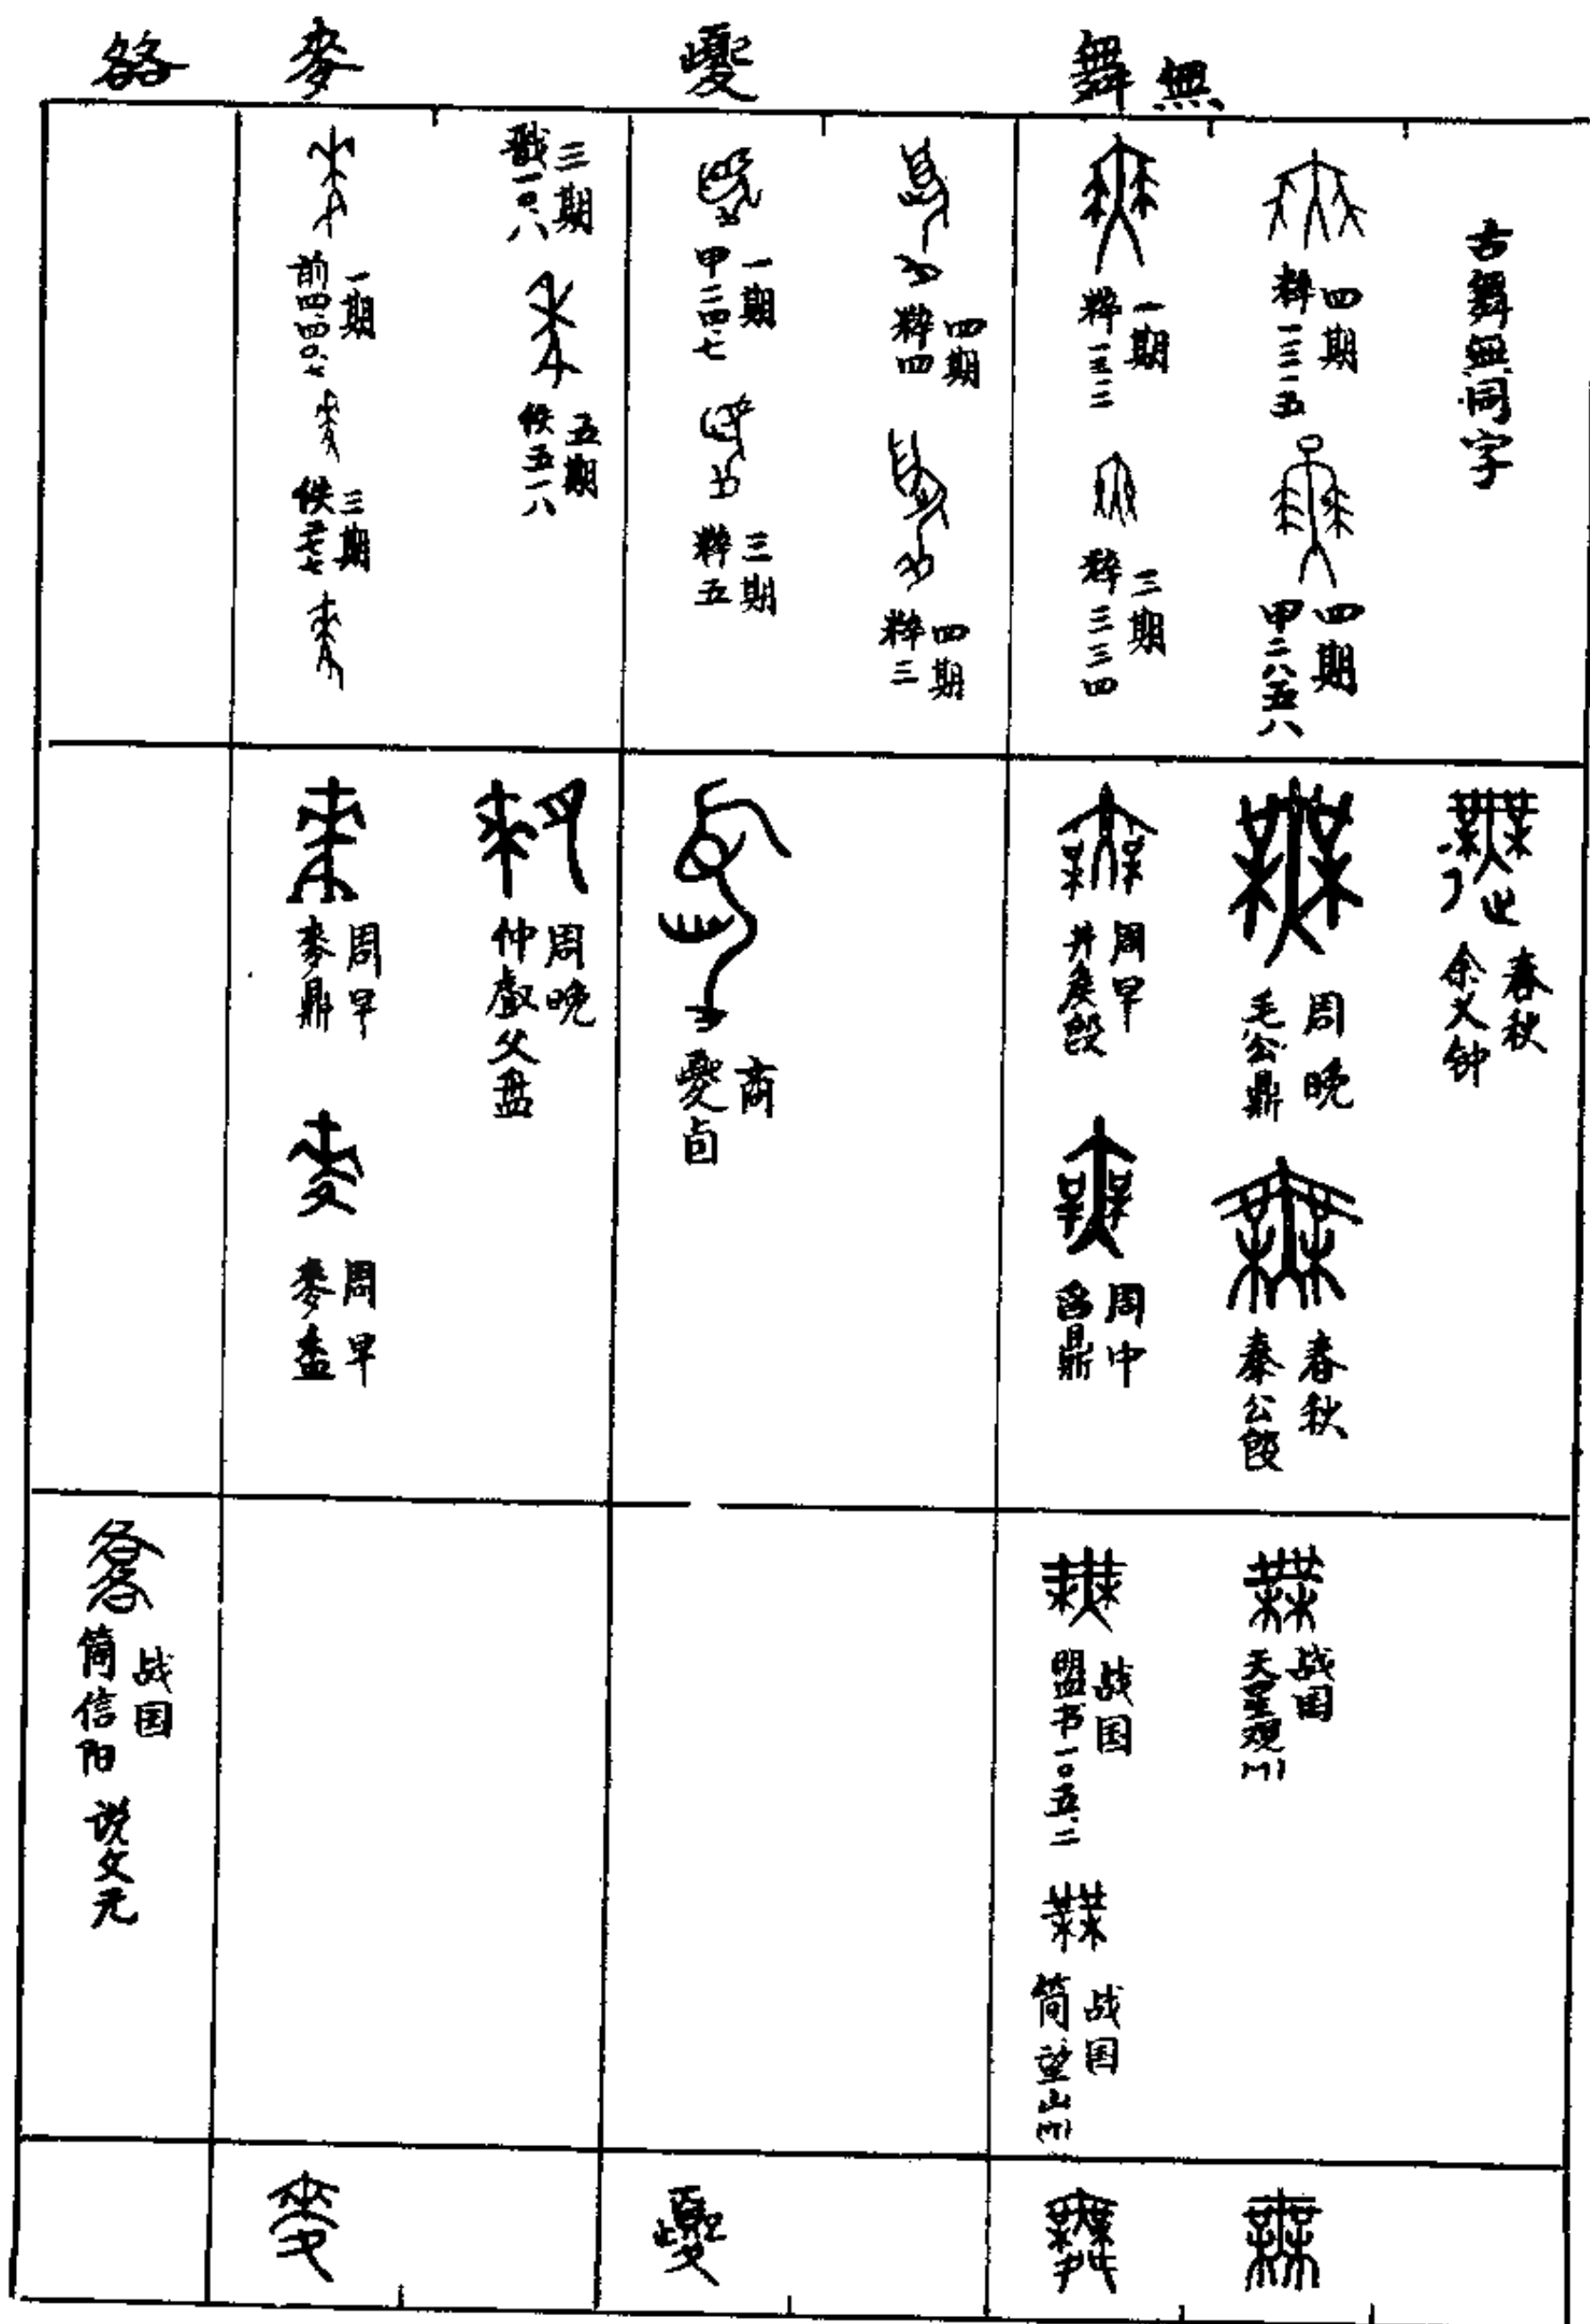 無
舞
夔
麥
古舞無同字
四期
粹一三一五
四期
甲二八五八
一期
粹一三一三
三期
粹一三三四
四期
粹四
四期
粹三
一期
甲二三四七
三期
粹五
三期
戩一〇·八
五期
佚五一八
一期
前四·四〇·六
三期
春秋
余义钟
周晚
毛公鼎
春秋
秦公毁
周早
井侯毁
周中
曶鼎
商
夔卣
周晚
仲䣄父盘
周早
麥鼎
周早
麥盉
战国
天星观
战国
盟书一〇五·三
战国
简望
战国
简信阳
说文无
無
舞
夔
麥